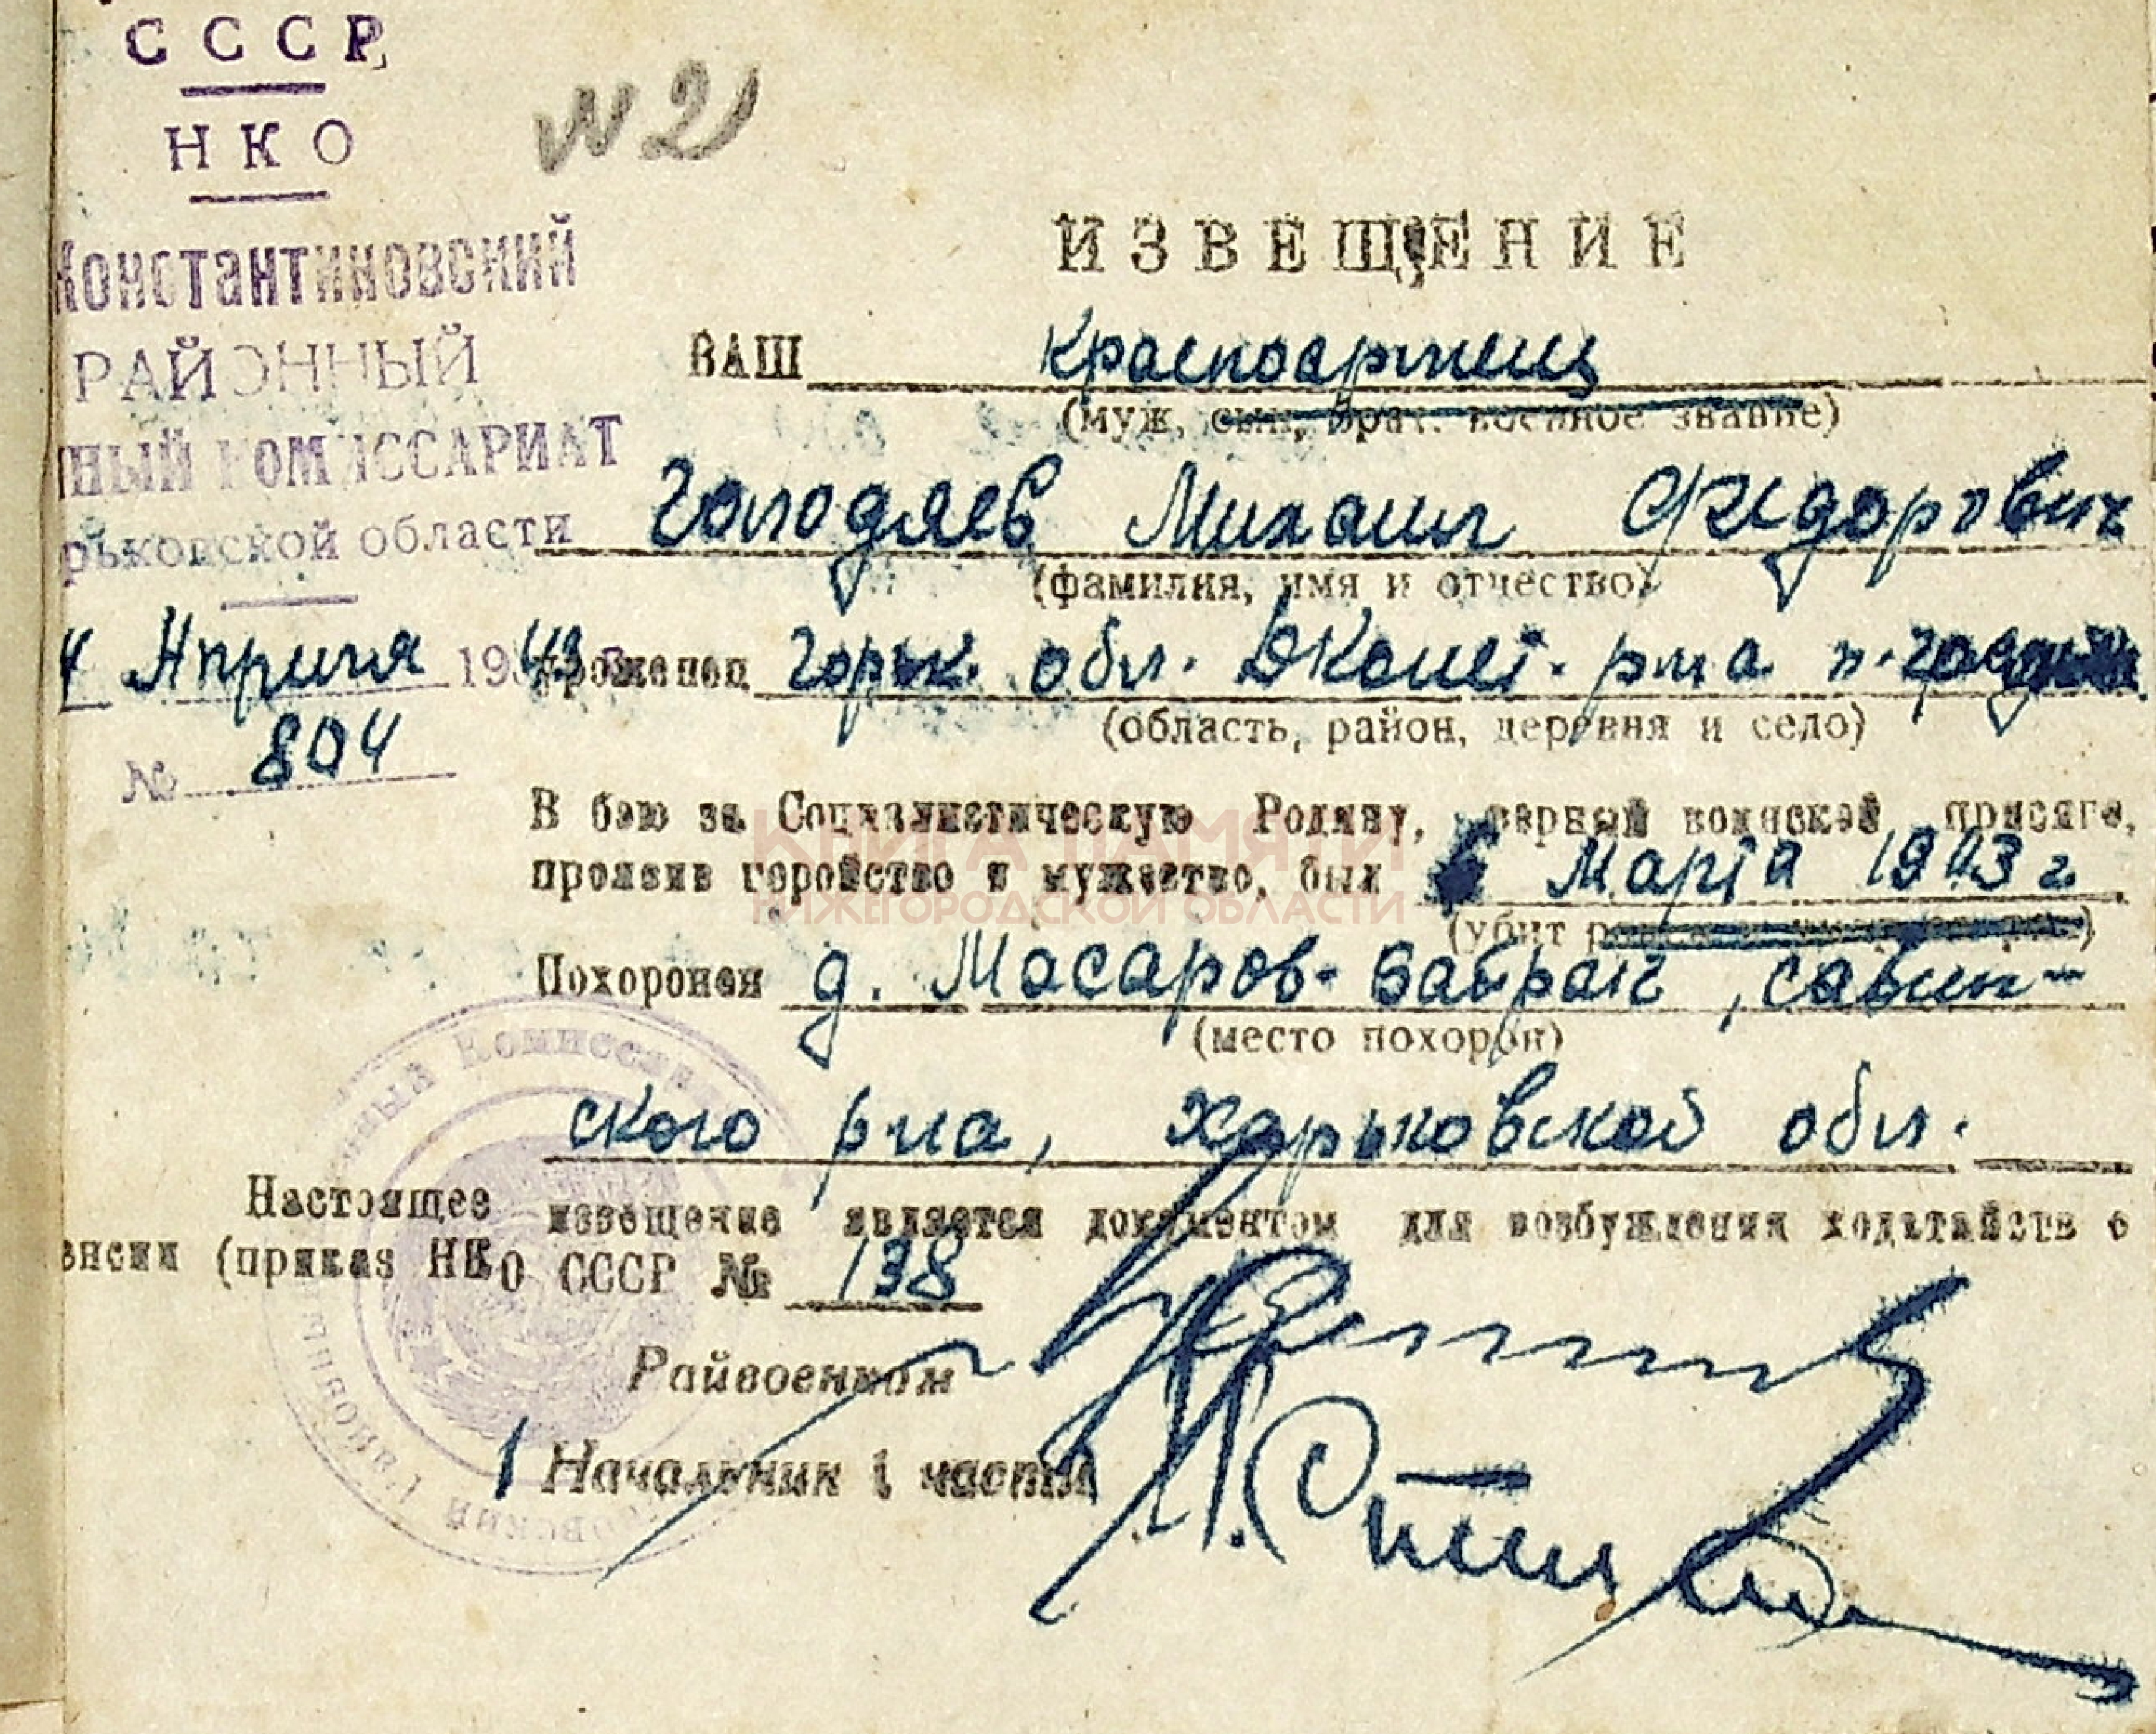 СССР
НКО
№ 21
Константиновский
РАЙОННЫЙ
НЫЙ КОМИССАРИАТ
рьковской области
4 Апреля 1943
№ 804
ИЗВЕЩЕНИЕ
ВАШ красноармеец
(муж, сын, брат. военное звание)
Голодяев Михаил Фидорович
(фамилия, имя и отчество)
уроженец Горьк. обл. Дконст. р-на п.
(область, район, деревня и село)
В бою за Социалистическую Родину, верный воинской присяге,
проявив геройство и мужество, был 6 Марта 1943 г.
(убит
Похоронен д. Масаров-Байрак, Савин-
(место похорон)
ского р-на, Харьковской обл.
Настоящее извещение является документом для возбуждения ходатайств о
енсии (приказ НКО СССР № 138
Райвоенком
Начальник 1 части
КНИГА ПАМЯТИ
НИЖЕГОРОДСКОЙ ОБЛАСТИ